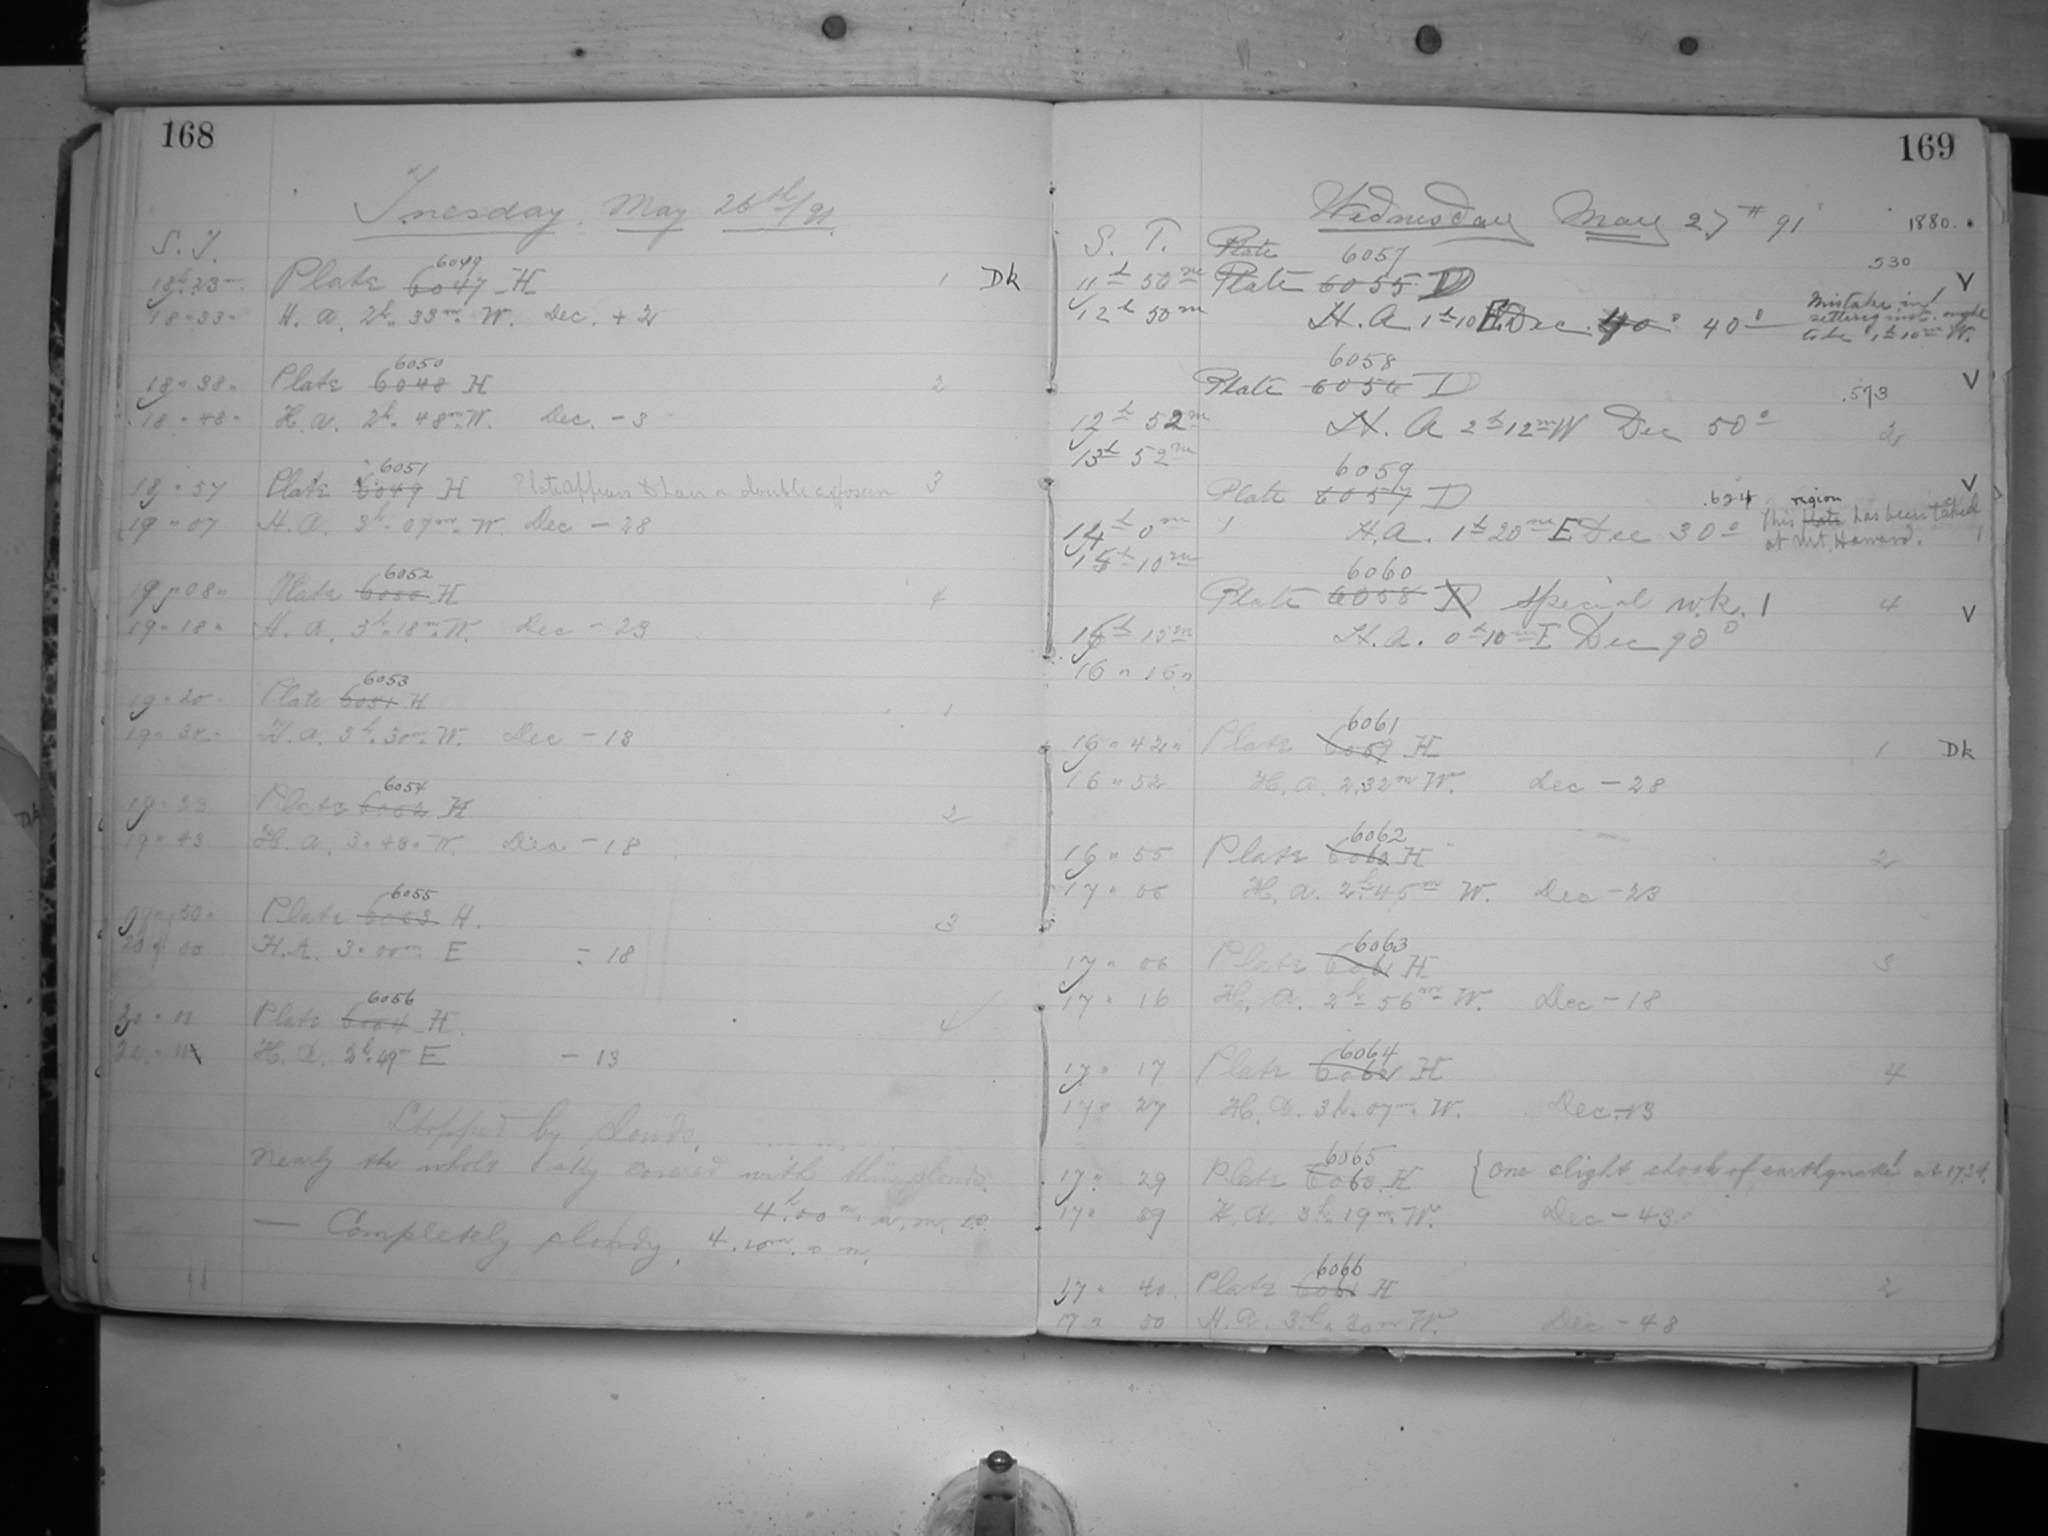 168
Tuesday, May 26th/91.
S. T.
6049
18h 23m Plate 6047 H 1 Dk
18 " 33 " H. A. 2h. 33m. W. Dec. + 2
6050
18 " 38 " Plate 6048 H 2
18 " 48 " H. A. 2h. 48m. W. Dec. - 3
6051
18 " 57 Plate 6049 H Plate appears to have a double exposure 3
19 " 07 H. A. 3h. 07m. W. Dec - 28
6052
19 " 08 " Plate 6050 H 4
19 " 18 " H. A. 3h. 18m. W. Dec - 23
6053
19 " 20 " Plate 6051 H 1
19 " 30 " H. A. 3h. 30m. W. Dec - 13
6054
19 " 33 Plate 6052 H 2
19 " 43 H. A. 3 " 43 " W. Dec - 18
6055
19 " 50 " Plate 6053 H. 3
20 " 00 H. A. 3 " 00m. E - 18
6056
20 " 01 Plate 6054 H. 4
20 " 11 H. A. 2h. 49m E - 13
Stopped by clouds.
Nearly the whole sky covered with thin clouds.
4h.00m. a. m.
— Completely cloudy. 4.10m. a. m.
169
Wednesday May 27th 91
1880.
S. T. Plate
6057
530
11h 50m Plate 6055 D V
12h 50m H. A. 1h 10 E Dec. 40° 40° Mistake in
setting inst. ought
to be 1h 10m W.
6058
Plate 6056 D .573 V
12h 52m H. A 2h 12m W Dec 50° 2
13h 52m
6059
Plate 6057 D .624 region V
14h 0m H. A. 1h 20m E Dec 30° This plate has been taken
15h 10m at Mt. Harvard.
6060
Plate 6058 D special wk. 1 4 V
15h 15m H. A. 0h 10m E Dec 90°
16 " 16 "
6061
16 " 42 " Plate 6059 H 1 Dk
16 " 52 H. A. 2.32m W. Dec - 28
6062
16 " 55 Plate 6060 H 2
17 " 05 H. A. 2h. 45m W. Dec - 23
6063
17 " 06 Plate 6061 H 3
17 " 16 H. A. 2h 56m W. Dec - 18
6064
17 " 17 Plate 6062 H 4
17 " 27 H. A. 3h. 07m. W. Dec. - 13
6065
17 " 29 Plate 6063 H { One slight shock of earthquake at 17.34.
17 " 39 H. A. 3h. 19m. W. Dec - 43
6066
17 " 40 Plate 6064 H 2
17 " 50 H. A. 3h. 30m W. Dec - 48